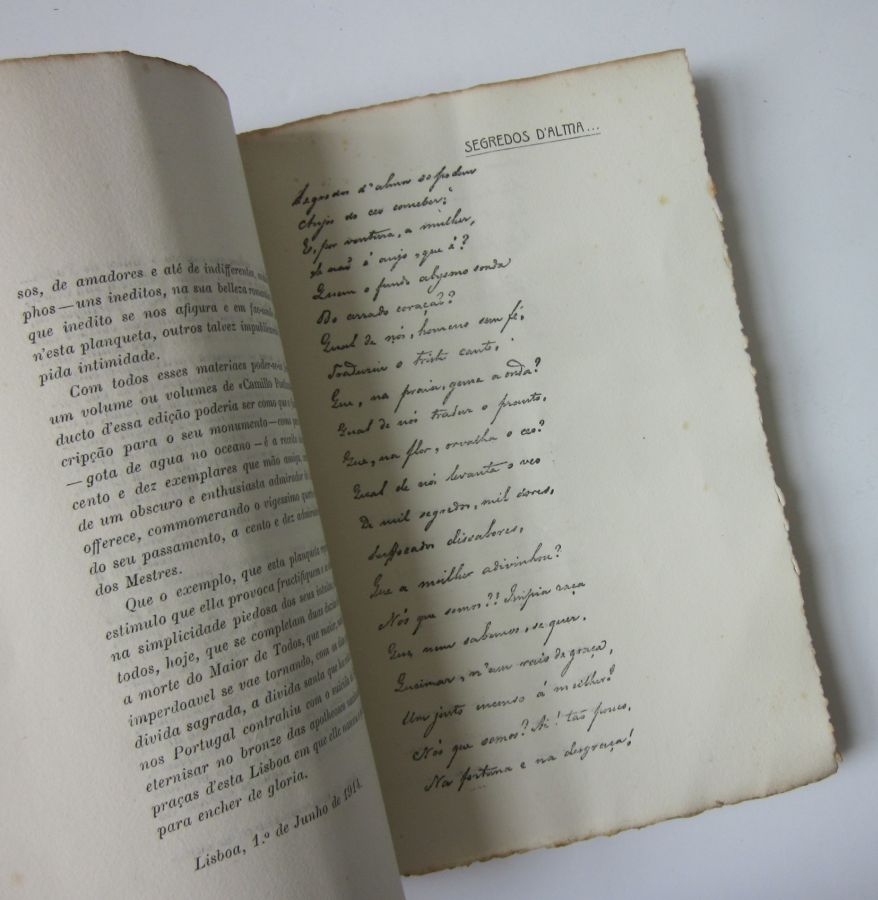 sos, de amadores e até de indifferentes,
phos—uns ineditos, na sua belleza
que inedito se nos afigura e em
n'esta planqueta, outros talvez
pida intimidade.
Com todos esses materiaes poder-se-ia
um volume ou volumes de «Camillo
ducto d'essa edição poderia ser como que a
cripção para o seu monumento—como
—gota de agua no oceano—é a receita
cento e dez exemplares que mão amiga,
de um obscuro e enthusiasta admirador
offerece, commomerando o vigessimo
do seu passamento, a cento e dez
dos Mestres.
Que o exemplo, que esta planqueta
estimulo que ella provoca fructifiquem
na simplicidade piedosa dos seus
todos, hoje, que se completam duas
a morte do Maior de Todos, que maior,
imperdoavel se vae tornando, com os
divida sagrada, a divida santa que
nos Portugal contrahiu com o suicida
eternisar no bronze das apotheoses
praças d'esta Lisboa em que elle nasceu e
para encher de gloria.
Lisboa, 1.º de Junho de 1914.
SEGREDOS D'ALMA...
Segredos d'alma só podem
Anjos do ceo conceber;
E, por ventura, a mulher,
Se não é anjo, que é?
Quem o fundo abysmo sonda
Do cerrado coração?
Qual de nós, homens sem fé,
Traduzir o triste canto,
Que, na praia, geme a onda?
Qual de nós traduz o pranto,
Que, na flor, orvalha o ceo?
Qual de nós levanta o veo
De mil segredos, mil dores,
Suffocados dissabores,
Que a mulher adivinhou?
Nós que somos?! Impia raça
Que nem sabemos, se quer,
Queimar, n'um vaso de graça,
Um justo incenso á mulher!
Nós que somos? Ai! tão pouco,
Na fortuna e na desgraça!